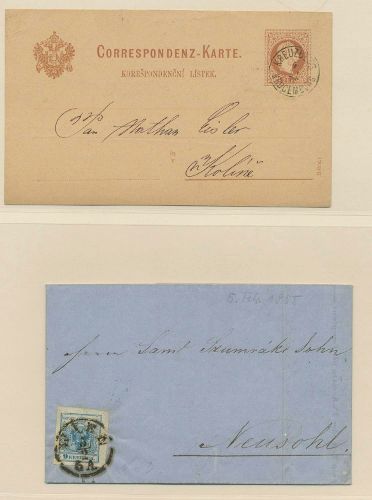 CORRESPONDENZ-KARTE.
KORESPONDENČNÍ LÍSTEK.
Pan Nathan Eisler
v Kolíně
5. Feb. 1855
Herrn Saml Szumráks Sohn,
Neusohl.
WIEN